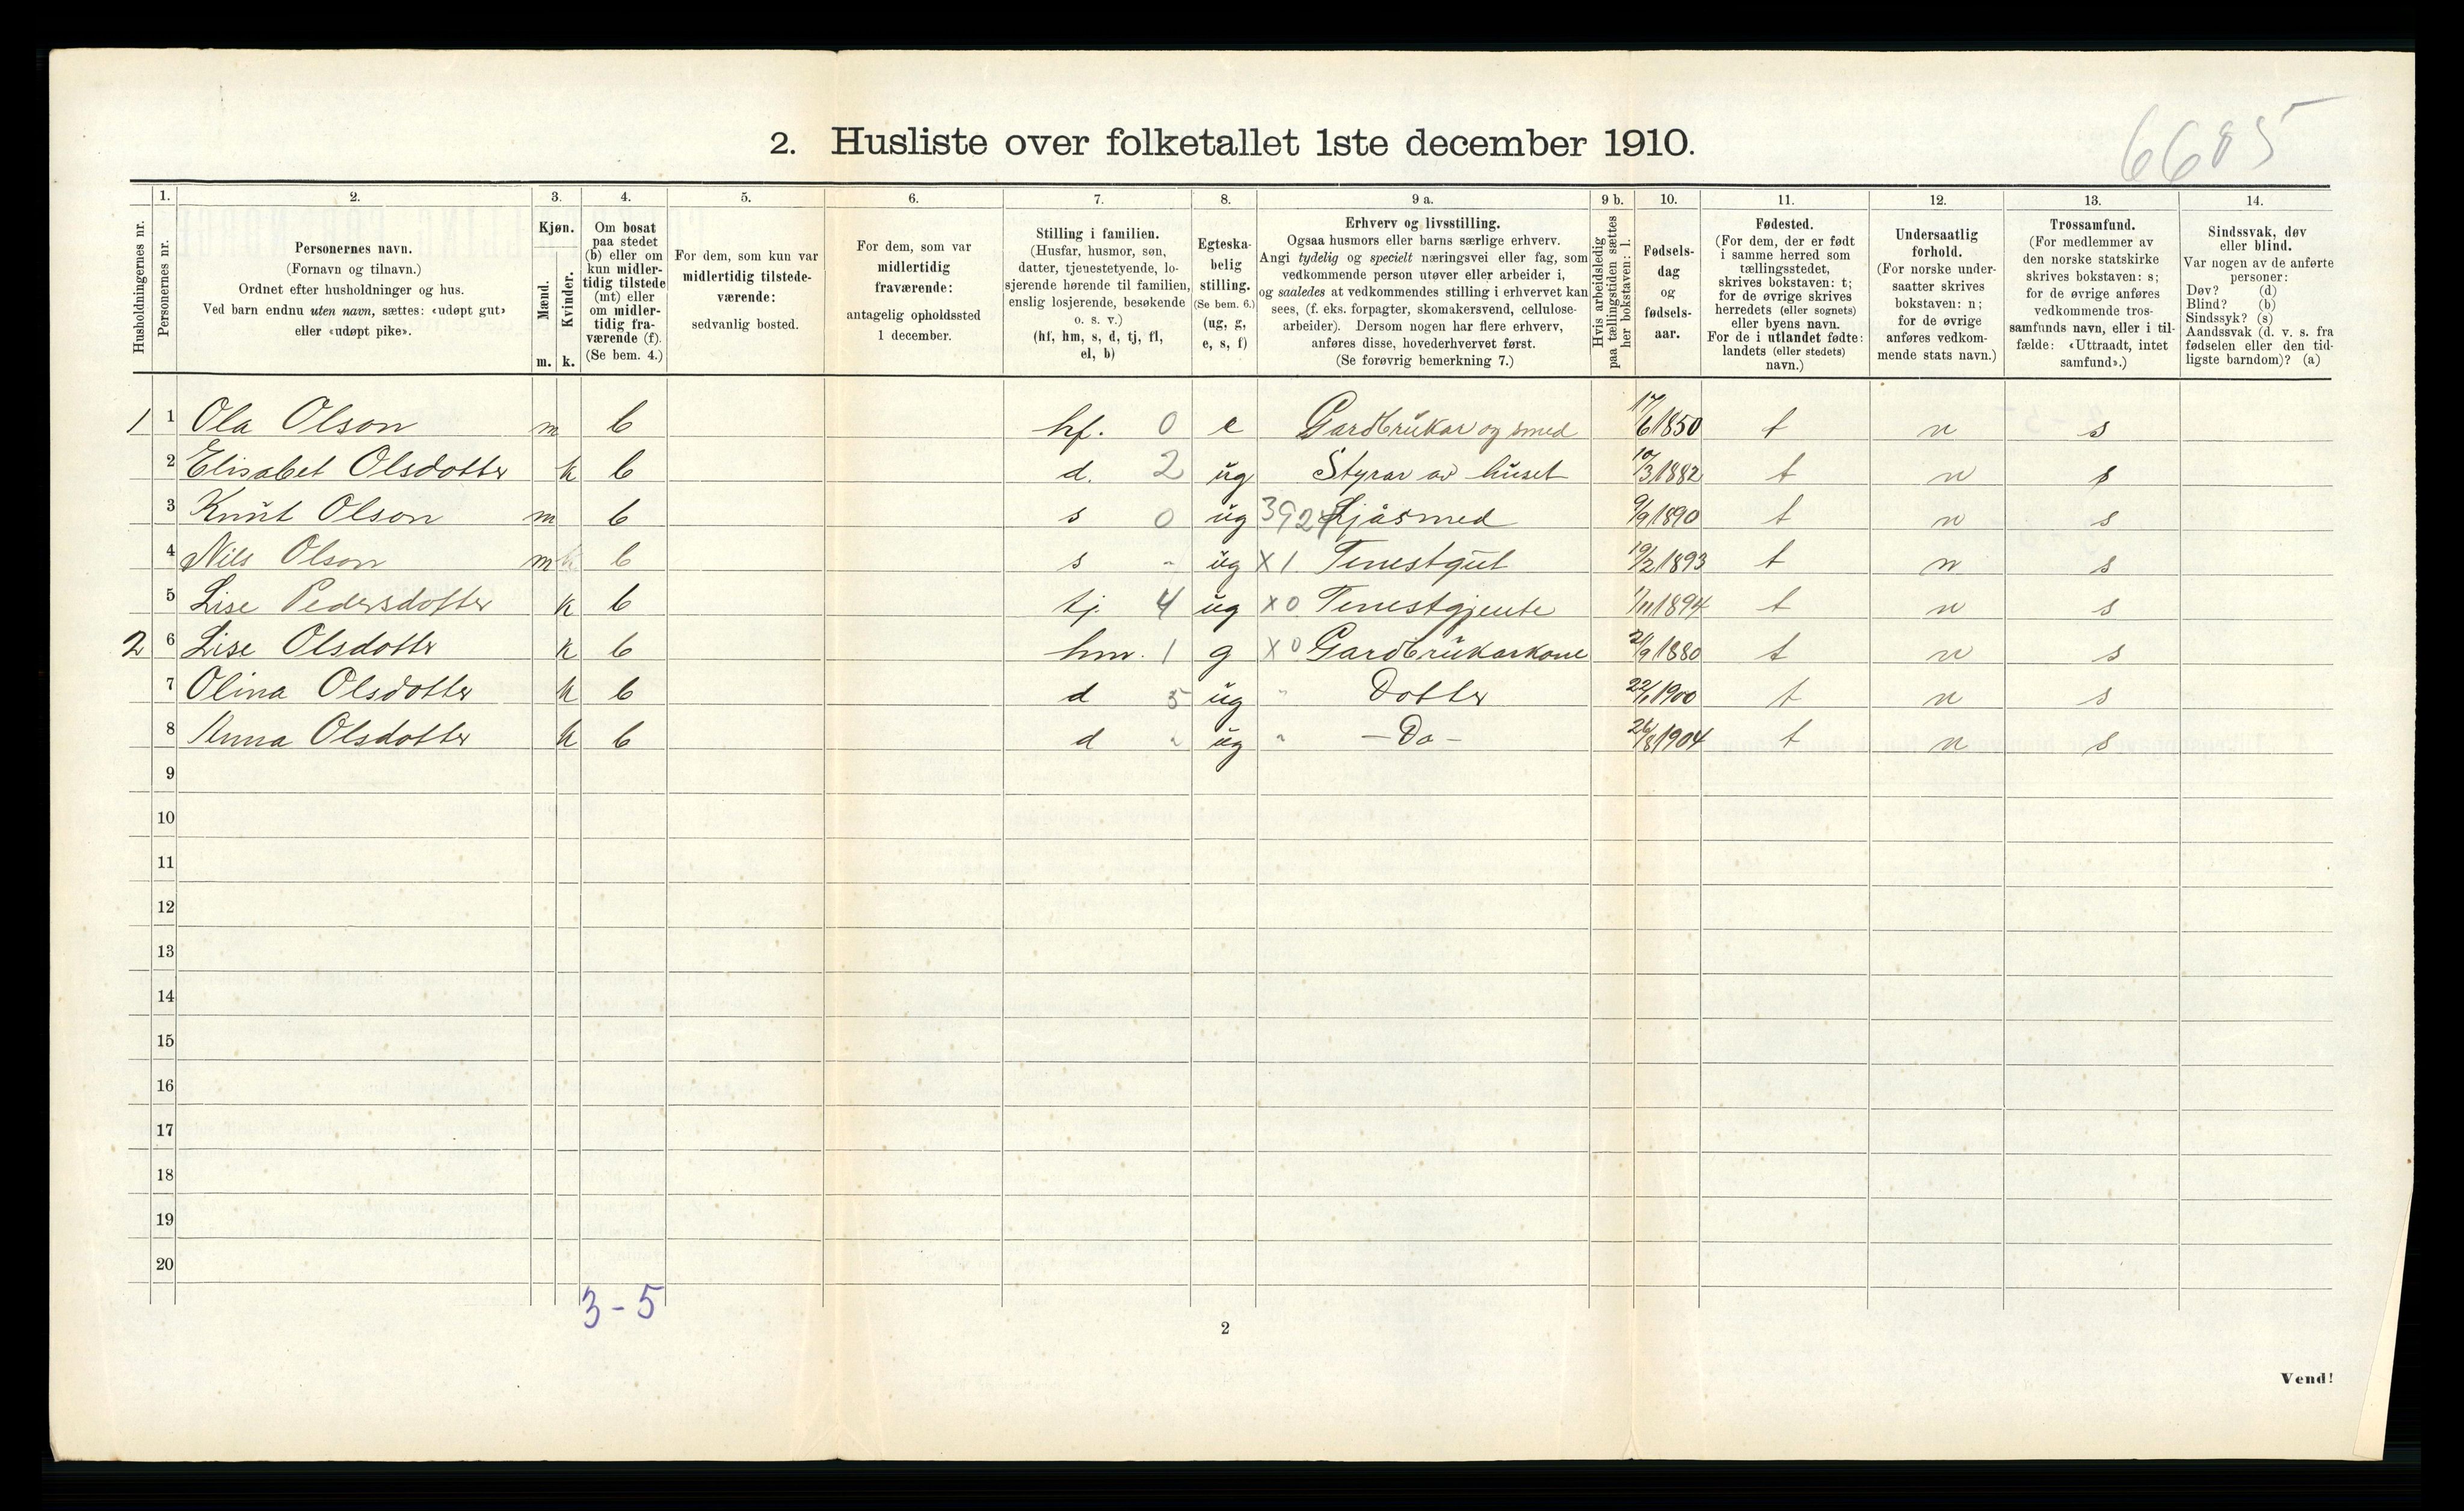 6685
2. Husliste over folketallet 1ste december 1910.
Husholdningernes nr.
1. Personernes nr.
2. Personernes navn. (Fornavn og tilnavn.) Ordnet efter husholdninger og hus. Ved barn endnu uten navn, sættes: «udøpt gut» eller «udøpt pike».
3. Kjøn. Mænd. m. Kvinder. k.
4. Om bosat paa stedet (b) eller om kun midlertidig tilstede (mt) eller om midlertidig fraværende (f). (Se bem. 4.)
5. For dem, som kun var midlertidig tilstedeværende: sedvanlig bosted.
6. For dem, som var midlertidig fraværende: antagelig opholdssted 1 december.
7. Stilling i familien. (Husfar, husmor, søn, datter, tjenestetyende, losjerende hørende til familien, enslig losjerende, besøkende o. s. v.) (hf, hm, s, d, tj, fl, el, b)
8. Egteskabelig stilling. (Se bem. 6.) (ug, g, e, s, f)
9 a. Erhverv og livsstilling. Ogsaa husmors eller barns særlige erhverv. Angi tydelig og specielt næringsvei eller fag, som vedkommende person utøver eller arbeider i, og saaledes at vedkommendes stilling i erhvervet kan sees, (f. eks. forpagter, skomakersvend, cellulosearbeider). Dersom nogen har flere erhverv, anføres disse, hovederhvervet først. (Se forøvrig bemerkning 7.)
9 b. Hvis arbeidsledig paa tællingstiden sættes her bokstaven: l.
10. Fødselsdag og fødselsaar.
11. Fødested. (For dem, der er født i samme herred som tællingsstedet, skrives bokstaven: t; for de øvrige skrives herredets (eller sognets) eller byens navn. For de i utlandet fødte: landets (eller stedets) navn.)
12. Undersaatlig forhold. (For norske undersaatter skrives bokstaven: n; for de øvrige anføres vedkommende stats navn.)
13. Trossamfund. (For medlemmer av den norske statskirke skrives bokstaven: s; for de øvrige anføres vedkommende trossamfunds navn, eller i tilfælde: «Uttraadt, intet samfund».)
14. Sindssvak, døv eller blind. Var nogen av de anførte personer: Døv? (d) Blind? (b) Sindssyk? (s) Aandssvak (d. v. s. fra fødselen eller den tidligste barndom)? (a)
1 1 Ola Olson m b hf. 0 e Gardbrukar og smed 17/6 1850 t n s
2 Elisabet Olsdotter k b d. 2 ug Styrar av huset 10/3 1882 t n s
3 Knut Olson m b s 0 ug 3924 Ljåsmed 9/9 1890 t n s
4 Nils Olson m b s " ug X 1. Tenestgut 19/2 1893 t n s
5 Lise Pedersdotter k b tj. 4 ug X 0 Tenestgjente 1/11 1894 t n s
2 6 Lise Olsdotter k b hm. 1 g X 0 Gardbrukarkone 21/9 1880 t n s
7 Olina Olsdotter k b d 5 ug " Dotter 22/1 1900 t n s
8 Anna Olsdotter k b d " ug " - Do - 26/8 1904 t n s
9
10
11
12
13
14
15
16
17
18
19
20
3 - 5
2
Vend!